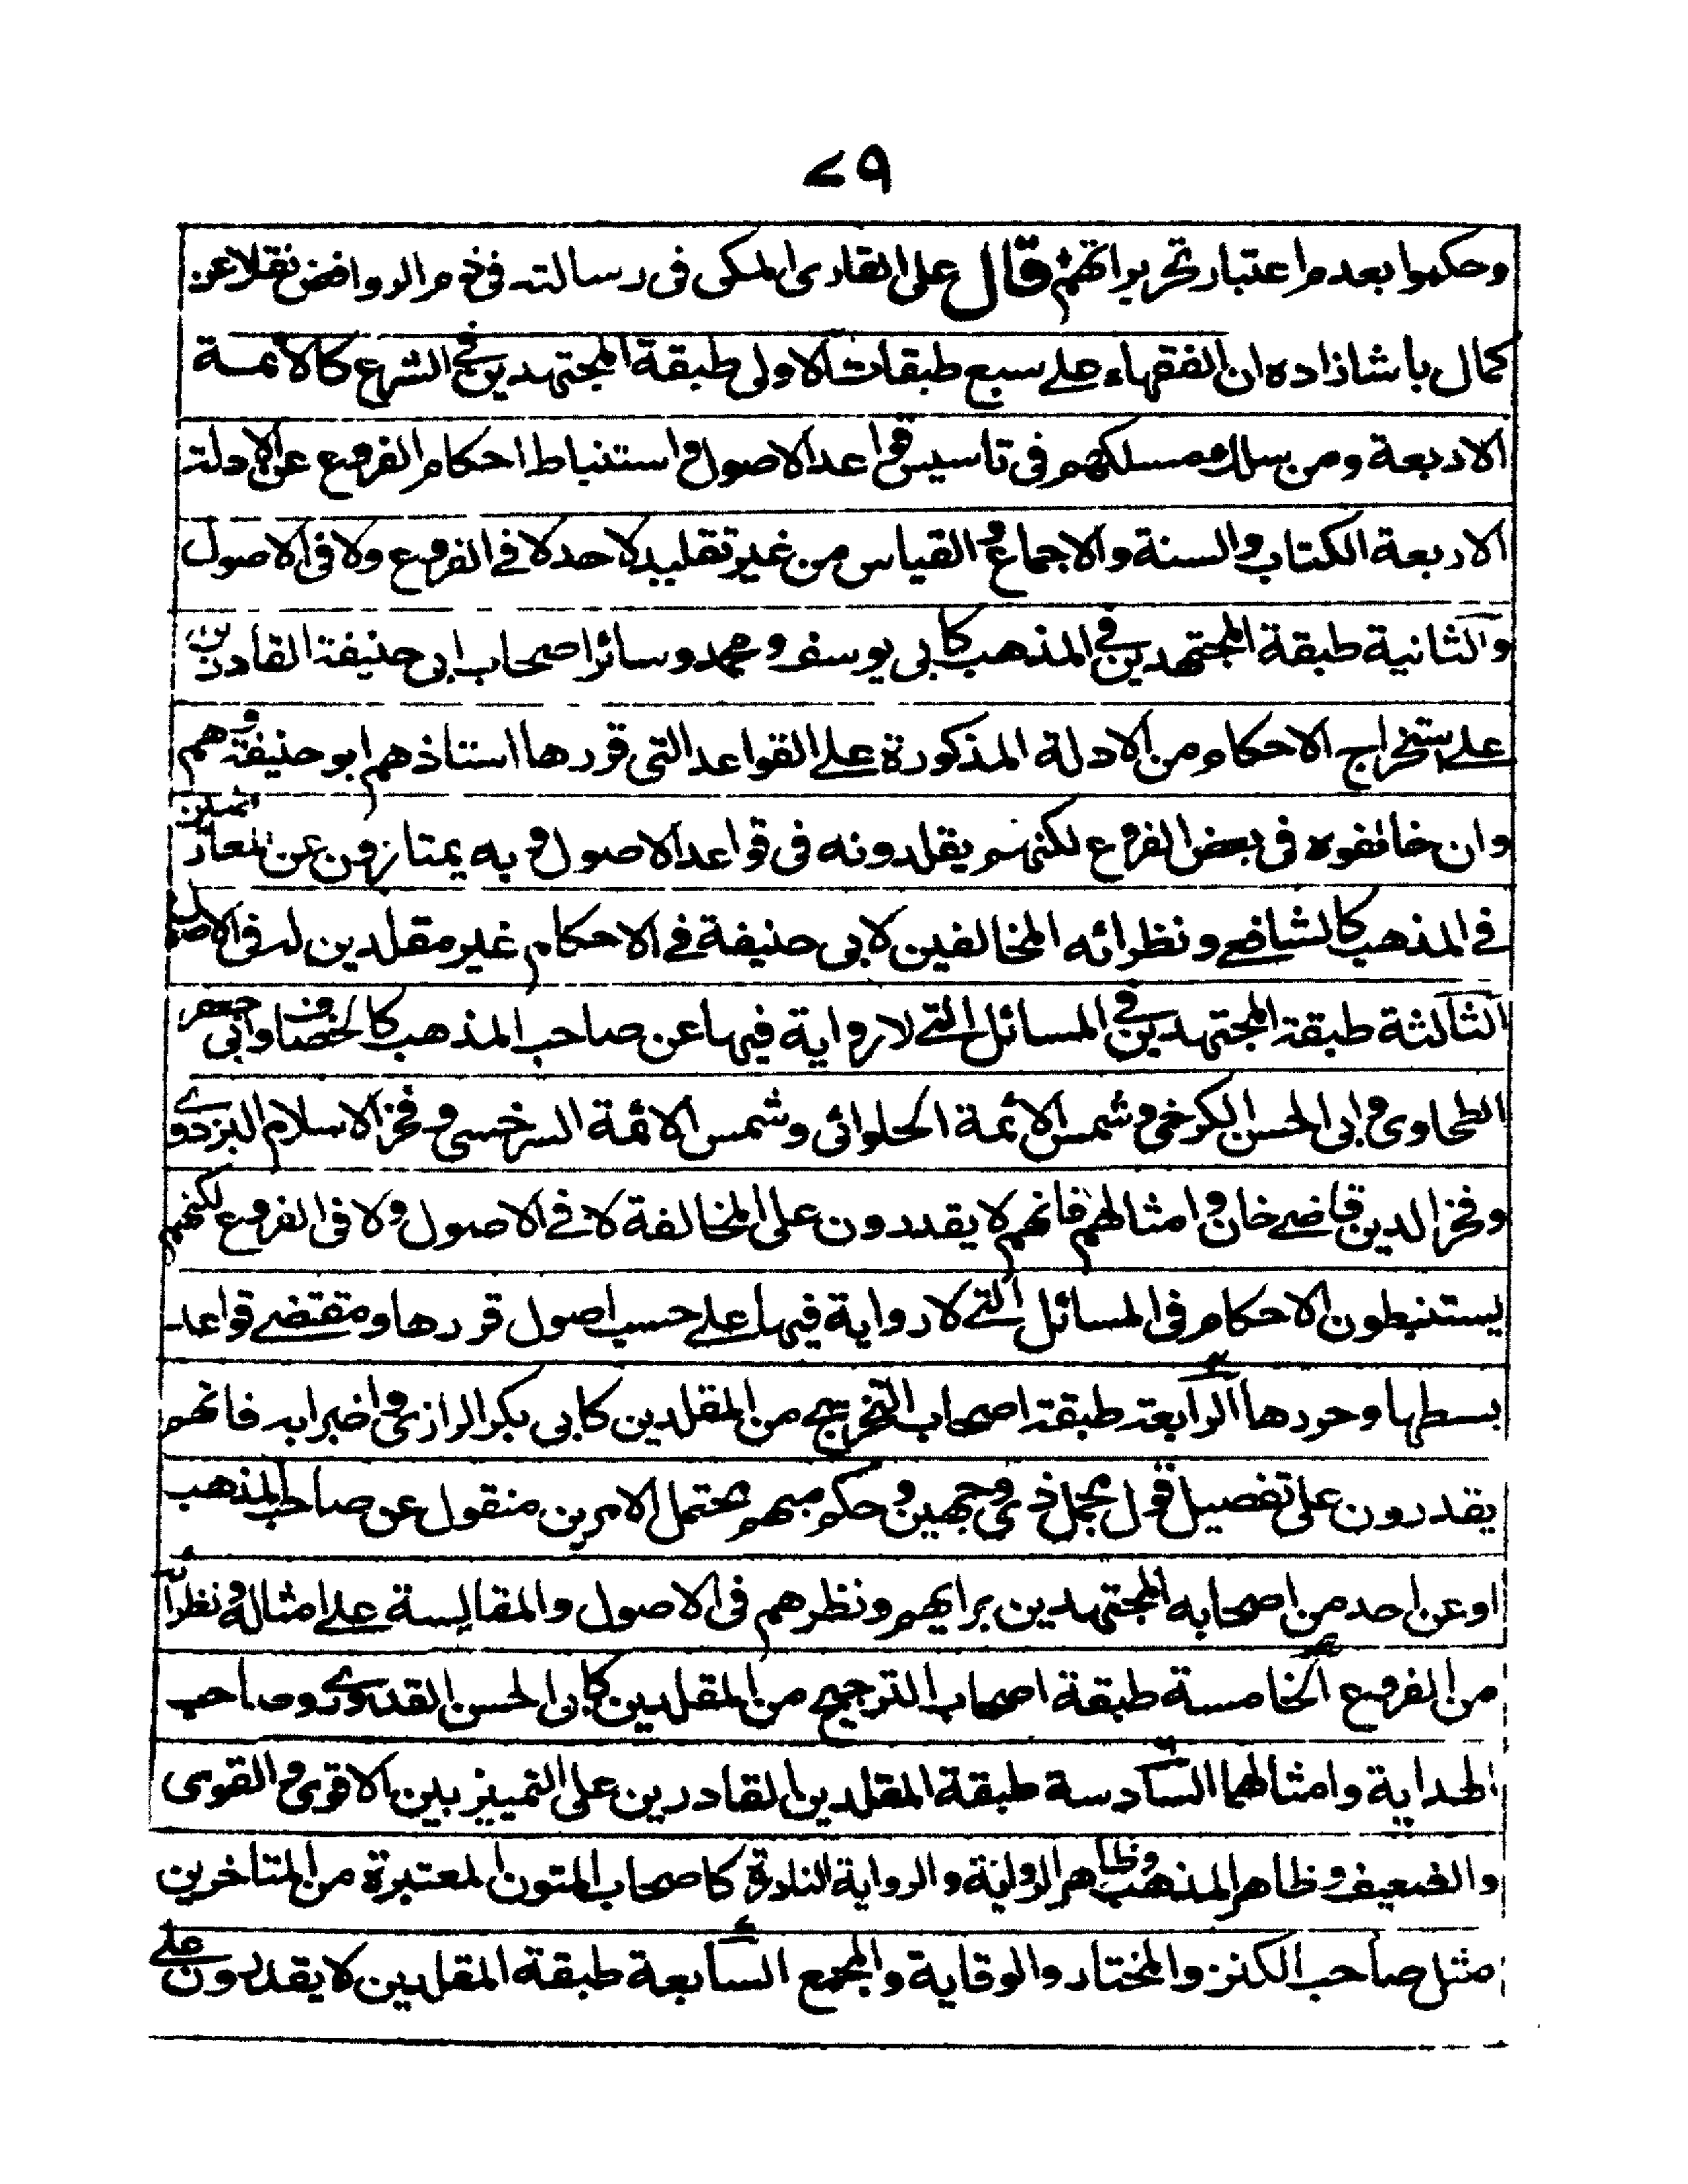 ٧٩
وحكموا بعدم اعتبار تحريراتهم قال على القارى المكى فى رسالته فى ذم الروافض نقلا عن
كمال باشا زاده ان الفقهاء على سبع طبقات الاولى طبقة المجتهدين فى الشرع كالائمة
الاربعة ومن سلك مسلكهم فى تاسيس قواعد الاصول و استنباط احكام الفروع عن الادلة
الاربعة الكتاب والسنة والاجماع والقياس من غير تقليد لاحد لا فى الفروع ولا فى الاصول
والثانية طبقة المجتهدين فى المذهب كابى يوسف ومحمد وسائر اصحاب ابى حنيفة القادرين
على استخراج الاحكام من الادلة المذكورة على القواعد التى قررها استاذهم ابو حنيفة وهم
وان خالفوه فى بعض الفروع لكنهم يقلدونه فى قواعد الاصول وبه يمتازون عن المعارضين
فى المذهب كالشافعى ونظرائه المخالفين لابى حنيفة فى الاحكام غير مقلدين له فى الاصول
الثالثة طبقة المجتهدين فى المسائل التى لا رواية فيها عن صاحب المذهب كالخصاف وابى جعفر
الطحاوى وابى الحسن الكرخى وشمس الائمة الحلوائى وشمس الائمة السرخسى وفخر الاسلام البزدوى
وفخر الدين قاضى خان وامثالهم فانهم لا يقدرون على المخالفة لا فى الاصول ولا فى الفروع لكنهم
يستنبطون الاحكام فى المسائل التى لا رواية فيها على حسب اصول قررها ومقتضى قواعد
بسطها وحررها الرابعة طبقة اصحاب التخريج من المقلدين كابى بكر الرازى واضرابه فانهم
يقدرون على تفصيل قول مجمل ذى وجهين وحكم مبهم محتمل الامرين منقول عن صاحب المذهب
او عن احد من اصحابه المجتهدين برايهم ونظرهم فى الاصول والمقايسة على امثاله ونظرائه
من الفروع الخامسة طبقة اصحاب الترجيح من المقلدين كابى الحسن القدورى وصاحب
الهداية وامثالهما السادسة طبقة المقلدين القادرين على التمييز بين الاقوى والقوى
والضعيف وظاهر المذهب وظاهر الرواية والرواية النادرة كاصحاب المتون المعتبرة من المتاخرين
مثل صاحب الكنز والمختار والوقاية والمجمع السابعة طبقة المقلدين لا يقدرون على